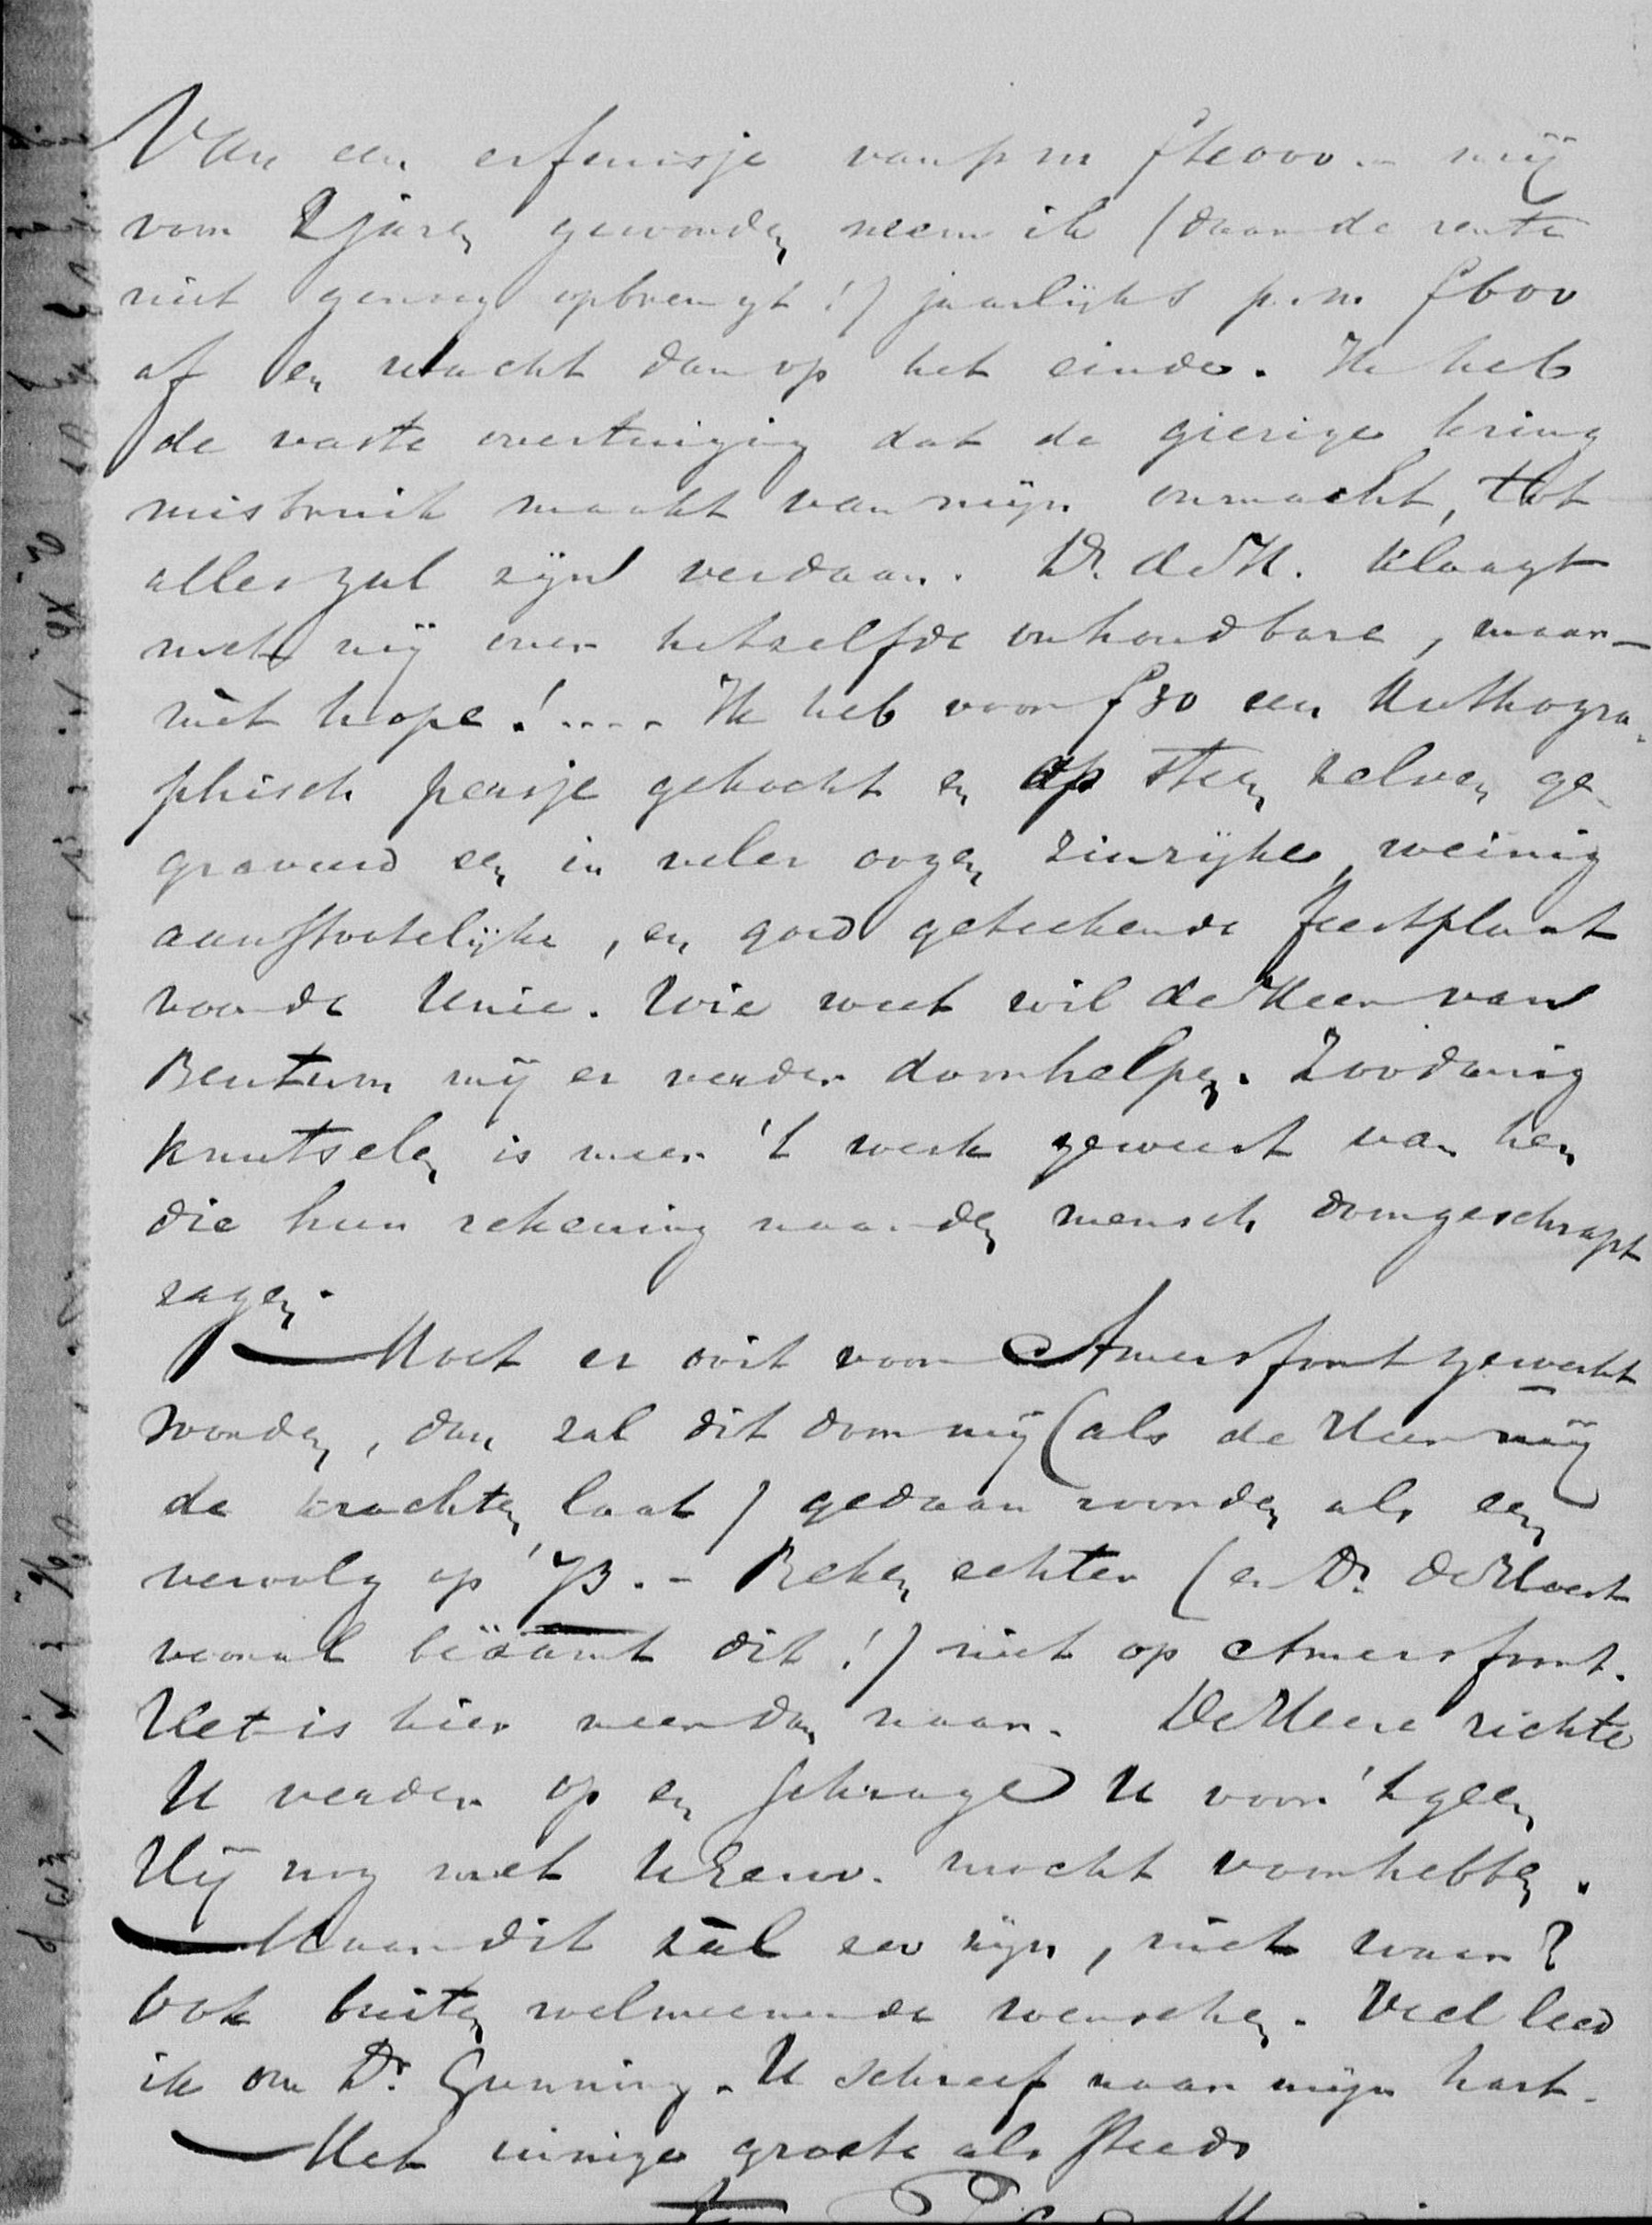 Van een erfenisje van p m f 16000.- mij
voor 2 jaren geworden neem ik (daar de rente
niet genoeg opbrengt!) jaarlijks p.m. f 600
af en wacht dan op het einde. Ik heb
de vaste overtuiging dat de gierige kring
misbruik maakt van mijn onmacht, tot
alles zal zijn verdaan. Dr. de H. klaagt
met mij over hetzelfde onhoudbare, maar -
niet hope!.... Ik heb voor f 30 een Authogra-
phisch persje gekocht en op steen zelven ge-
graveerd een in veler oogen zinrijke, weinig
aanstootelijke, en goed geteekende feestplaat
voor de Unie. Wie weet wil de Heer van
Bentum mij er verder doorhelpen. Zoodanig
knutselen is meer 't werk geweest van hen
die hun rekening naar den mensch doorgeschrapt
zagen.
Moet er ooit voor Amersfoort gewerkt
worden, dan zal dit door mij (als de Heer mij
de krachten laat) gedaan worden als een
vervolg op '73. - Reken echter (en Dr. de Hoest
vooral beäamt dit!) niet op Amersfoort.
Het is hier meer dan naar. De Heere richte
U verder op en schrage U voor 't geen
Hij nog met UEerw. mocht voorhebben.
Maar dit zàl zoo zijn, niet waar?
Ook buiten welmeenende wenschen. Veel leed
ik om Dr. Gunning. U schreef naar mijn hart.
Met innige groete als steeds